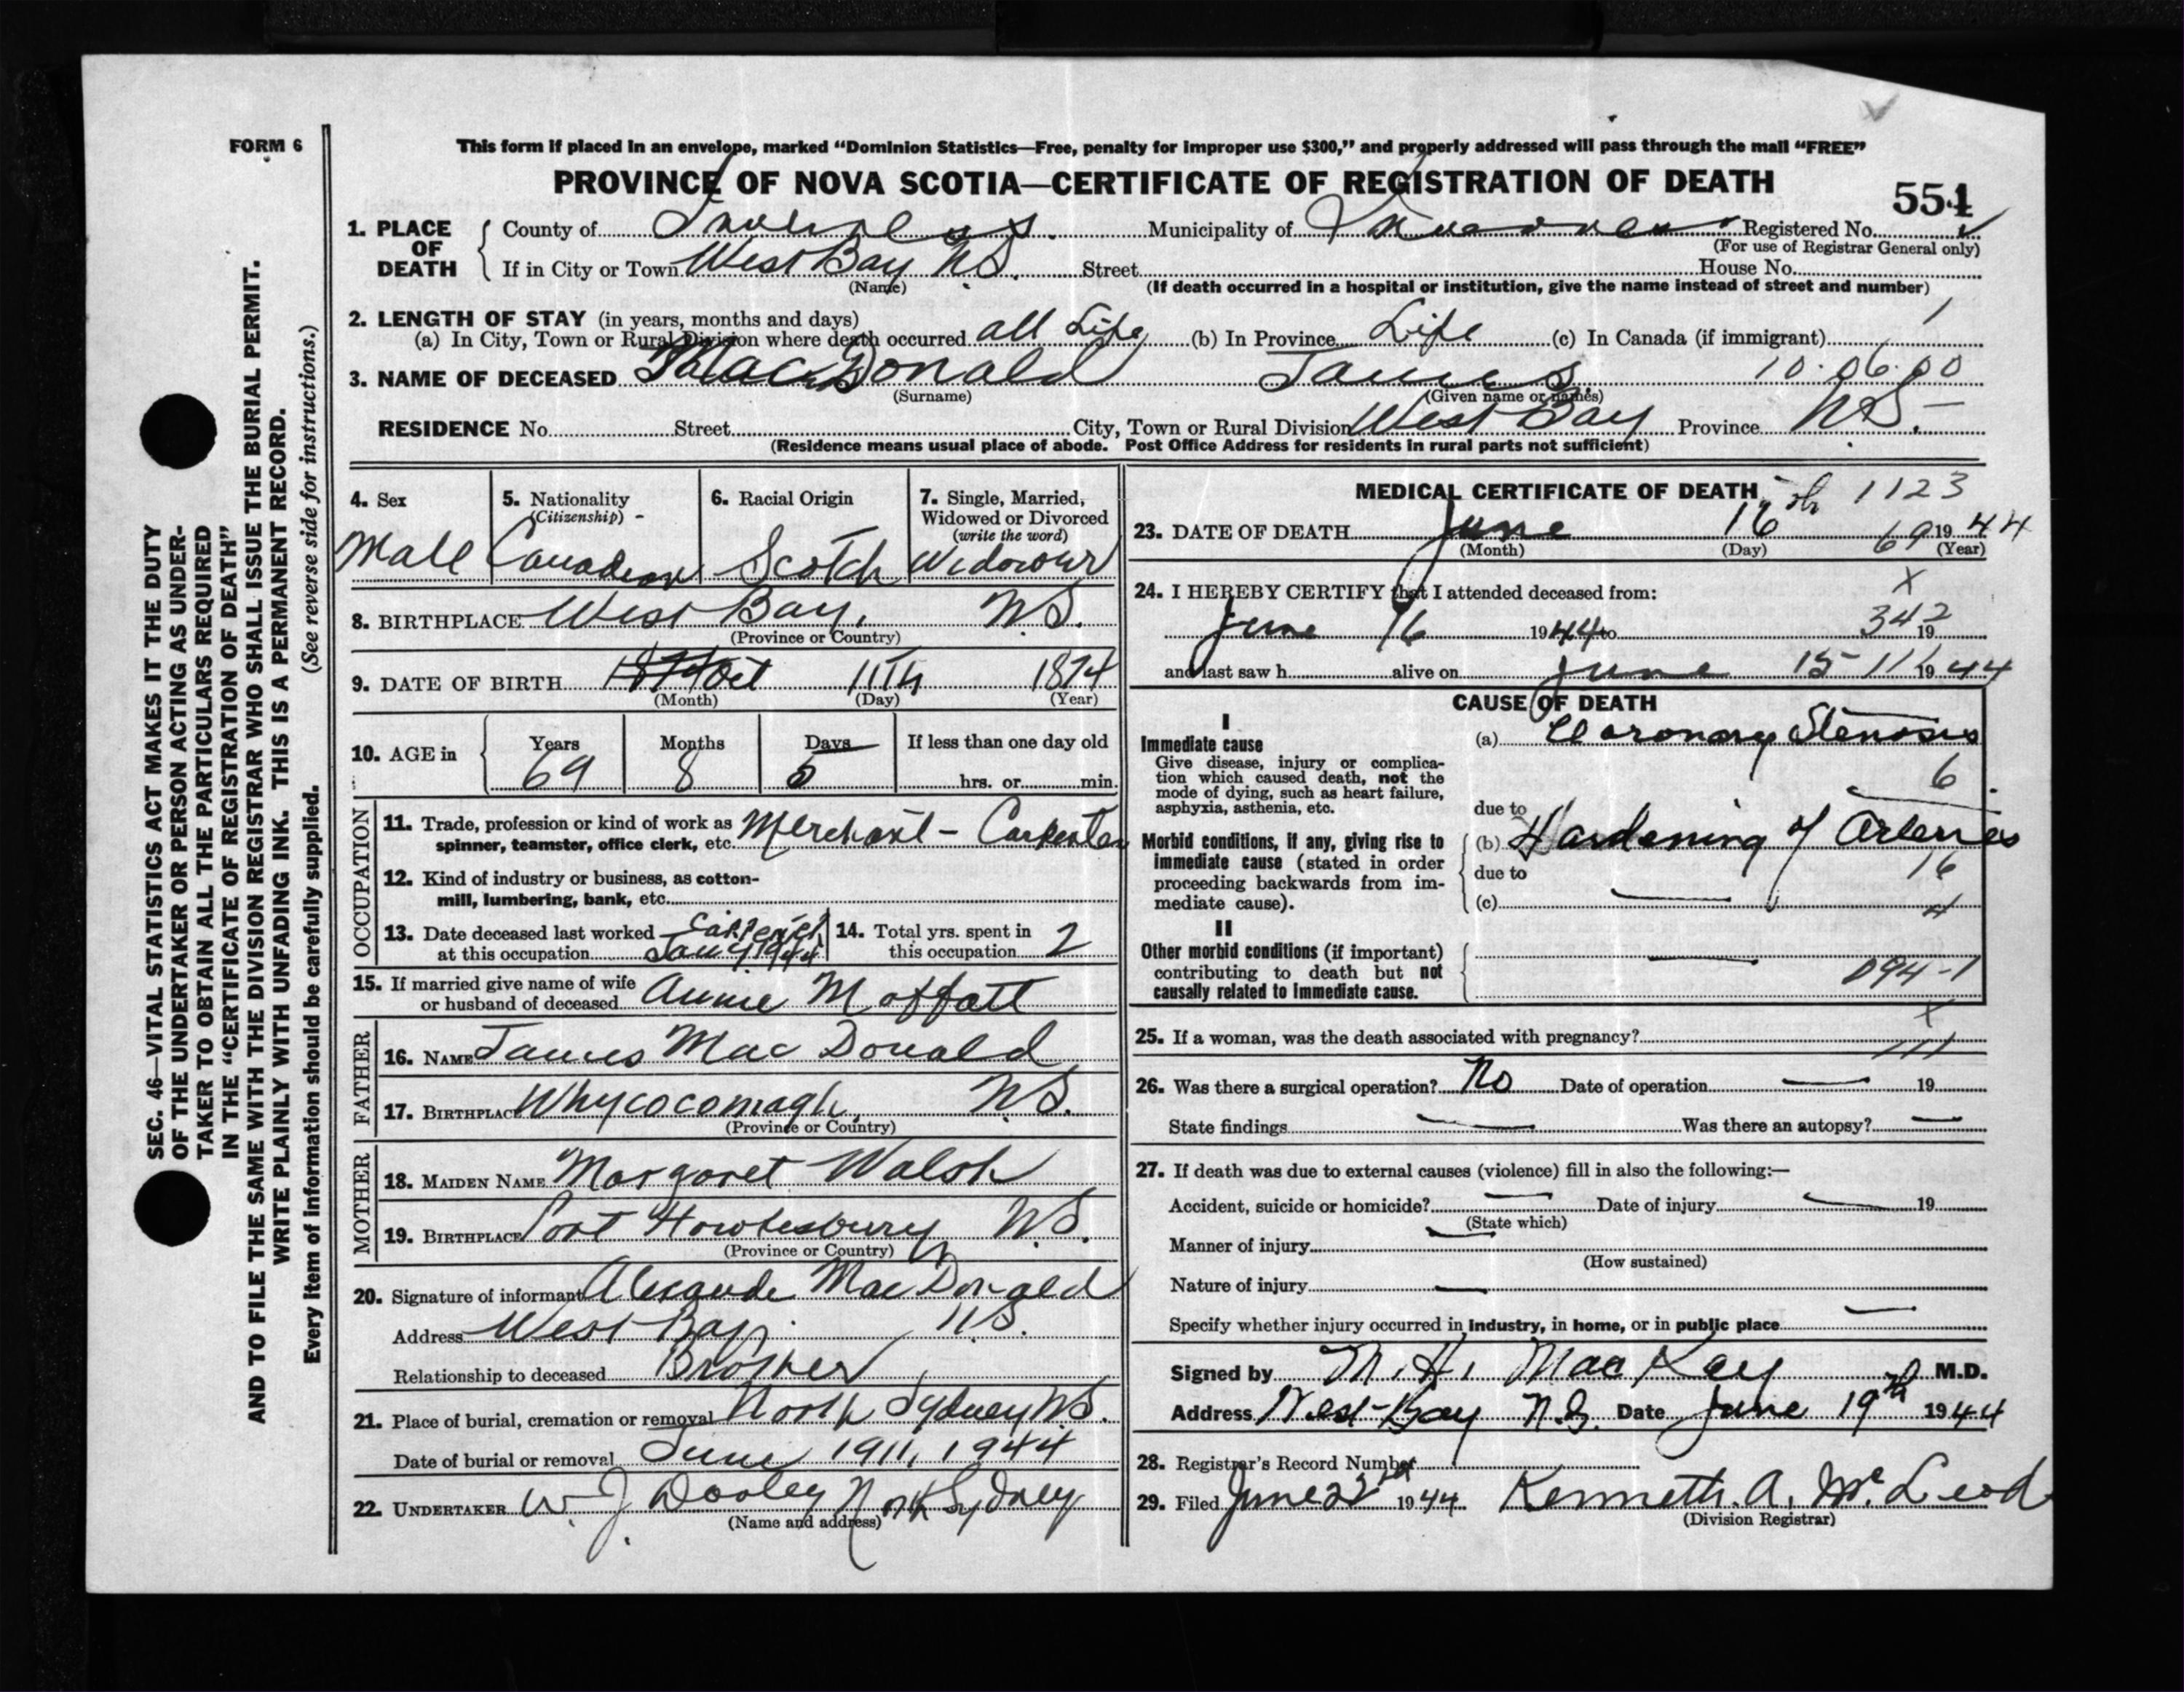 FORM 6
This form if placed in an envelope, marked “Dominion Statistics—Free, penalty for improper use $300,” and properly addressed will pass through the mail “FREE”
PROVINCE OF NOVA SCOTIA—CERTIFICATE OF REGISTRATION OF DEATH
551
1. PLACE OF DEATH
County of Inverness. Municipality of Inverness Registered No.
(For use of Registrar General only)
If in City or Town West Bay N.S. Street House No.
(Name)
(If death occurred in a hospital or institution, give the name instead of street and number)
2. LENGTH OF STAY (in years, months and days)
(a) In City, Town or Rural Division where death occurred all Life (b) In Province Life (c) In Canada (if immigrant)
3. NAME OF DECEASED MacDonald James 10.06.00
(Surname) (Given name or names)
RESIDENCE No. Street City, Town or Rural Division West Bay Province N.S.
(Residence means usual place of abode. Post Office Address for residents in rural parts not sufficient)
4. Sex Male
5. Nationality (Citizenship) - Canadian
6. Racial Origin Scotch
7. Single, Married, Widowed or Divorced (write the word) Widower
8. BIRTHPLACE West Bay, N.S.
(Province or Country)
9. DATE OF BIRTH Oct 11th 1874
(Month) (Day) (Year)
10. AGE in Years 69 Months 8 Days 5 If less than one day old
hrs. or min.
OCCUPATION
11. Trade, profession or kind of work as spinner, teamster, office clerk, etc. Merchant - Carpenter
12. Kind of industry or business, as cotton-
mill, lumbering, bank, etc.
13. Date deceased last worked at this occupation 1944
14. Total yrs. spent in this occupation 2
15. If married give name of wife
or husband of deceased Annie Moffatt
FATHER
16. NAME James Mac Donald
17. BIRTHPLACE Whycocomagh, N.S.
(Province or Country)
MOTHER
18. MAIDEN NAME Margaret Walsh
19. BIRTHPLACE Port Hawkesbury N.S.
(Province or Country)
20. Signature of informant MacDonald
Address West Bay N.S.
Relationship to deceased Brother
21. Place of burial, cremation or removal North Sydney N.S.
Date of burial or removal June 1944
22. UNDERTAKER W. J. Dooley North Sydney
(Name and address)
MEDICAL CERTIFICATE OF DEATH 1123
23. DATE OF DEATH June 16th 69 1944
(Month) (Day) (Year)
24. I HEREBY CERTIFY that I attended deceased from:
June 16 1944 to 342 19
and last saw h alive on June 15 1944
CAUSE OF DEATH
I
Immediate cause
Give disease, injury or complica-
tion which caused death, not the
mode of dying, such as heart failure,
asphyxia, asthenia, etc.
(a) Coronary Stenosis
6
due to
Morbid conditions, if any, giving rise to
immediate cause (stated in order
proceeding backwards from im-
mediate cause).
(b) Hardening of Arteries
16
due to
(c)
II
Other morbid conditions (if important)
contributing to death but not
causally related to immediate cause.
094-1
25. If a woman, was the death associated with pregnancy?
26. Was there a surgical operation? No Date of operation 19
State findings Was there an autopsy?
27. If death was due to external causes (violence) fill in also the following:—
Accident, suicide or homicide? Date of injury 19
(State which)
Manner of injury
(How sustained)
Nature of injury
Specify whether injury occurred in industry, in home, or in public place
Signed by M. H. MacKay M.D.
Address West-Bay N.S. Date June 19th 1944
28. Registrar's Record Number
29. Filed June 22 1944 Kenneth. A. McLeod
(Division Registrar)
SEC. 46—VITAL STATISTICS ACT MAKES IT THE DUTY
OF THE UNDERTAKER OR PERSON ACTING AS UNDER-
TAKER TO OBTAIN ALL THE PARTICULARS REQUIRED
IN THE “CERTIFICATE OF REGISTRATION OF DEATH”
AND TO FILE THE SAME WITH THE DIVISION REGISTRAR WHO SHALL ISSUE THE BURIAL PERMIT.
WRITE PLAINLY WITH UNFADING INK. THIS IS A PERMANENT RECORD.
Every item of information should be carefully supplied. (See reverse side for instructions.)